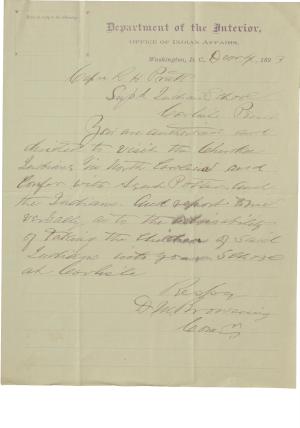 Department of the Interior,
OFFICE OF INDIAN AFFAIRS,
Washington, D.C., Decr 4, 1893
Capt R H Pratt
Supt Indian School
Carlisle Penn
You are authorized and
directed to visit the Cherokee
Indians in North Carolina and
Confer with Agent Potter and
the Indians. And report to me
verbally as to the advisability
of taking the children of said
Indians into your School
at Carlisle
Respy
D. M. Browning
Comr